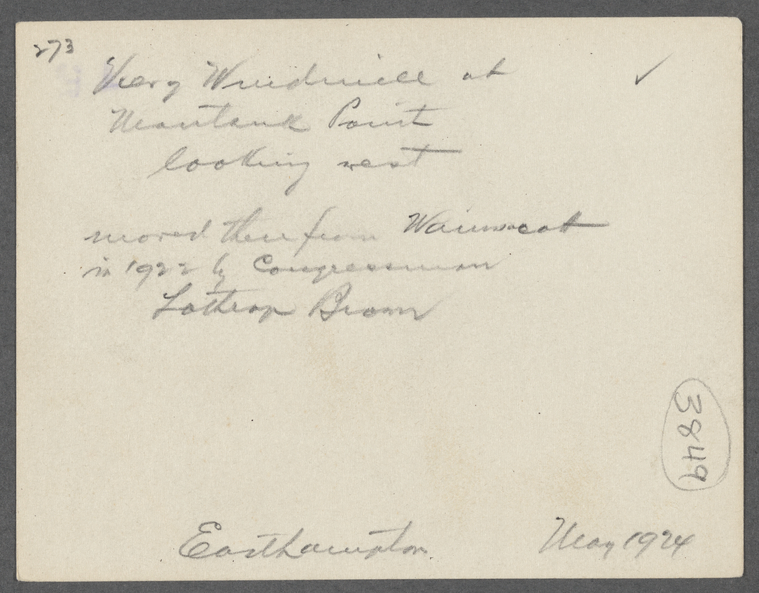 273
View Windmill at
Montauk Point
looking west
moved there from Wainscott
in 1922 by Congressman
Lathrop Brown
3849
Easthampton. May 1924